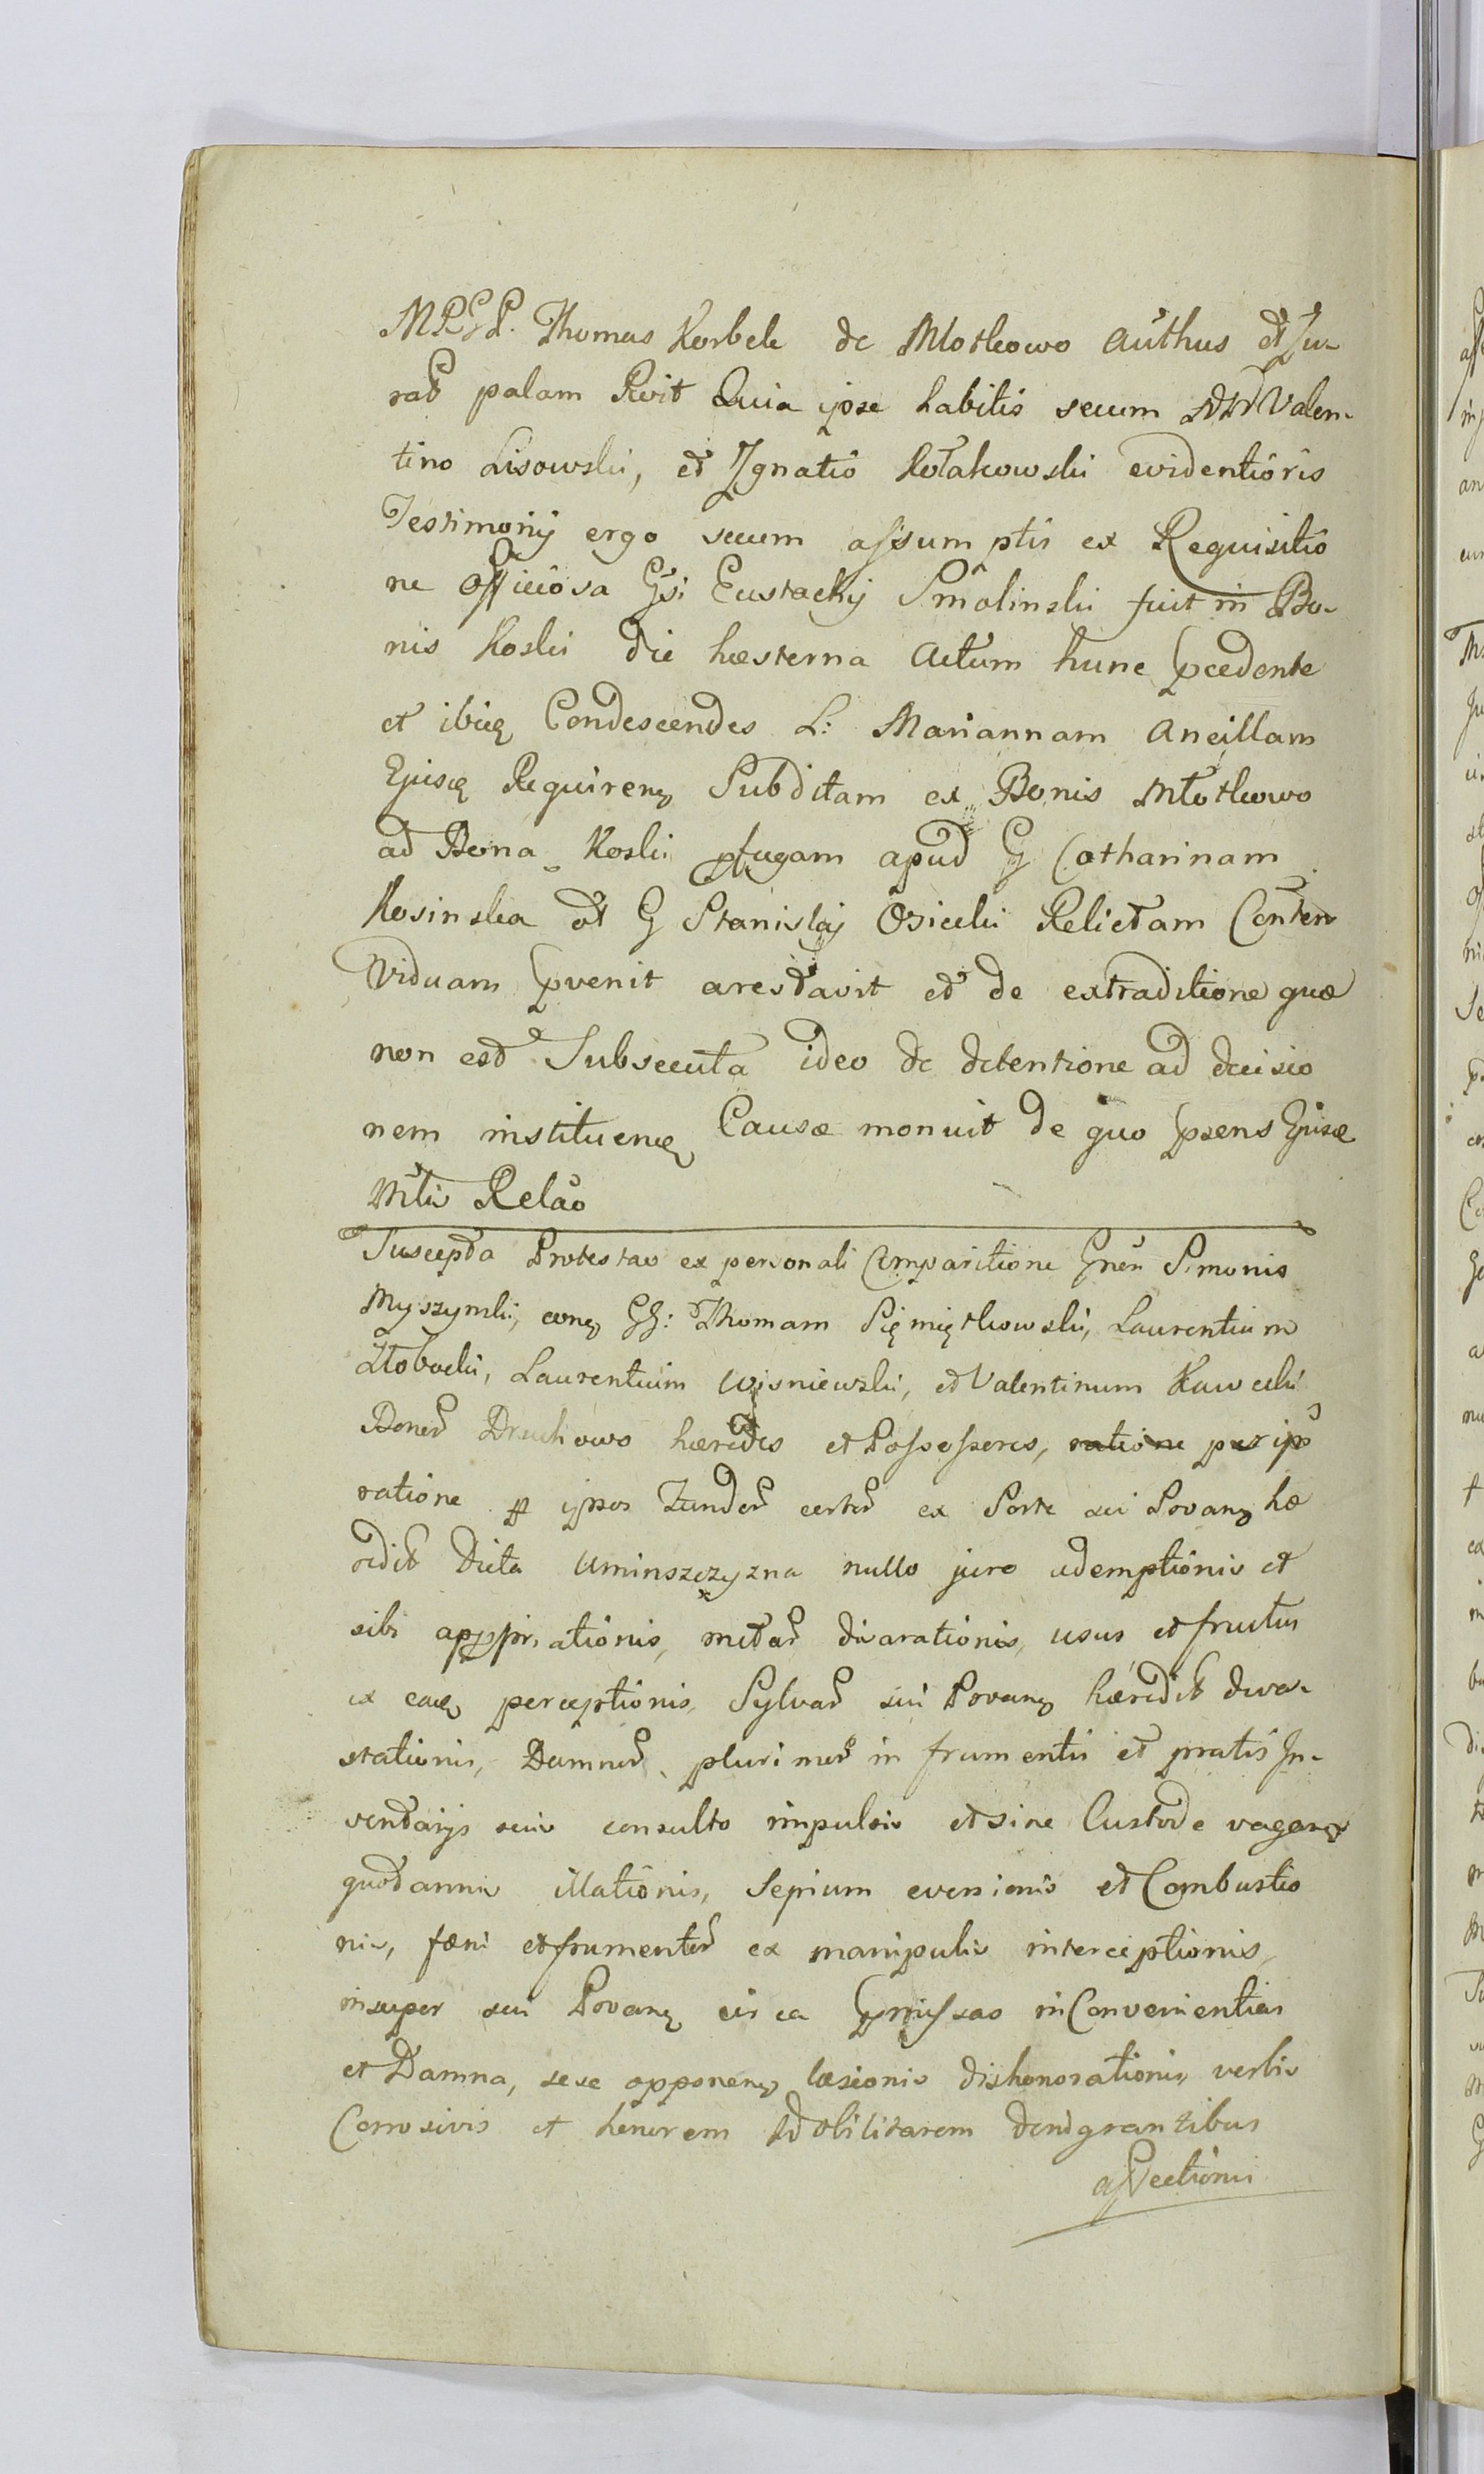 MRGP. Thomas Korbek de Mlotkowo Authus et Ju-
rat palam Rvit Quia ipse habitis secum NN Valen-
tino Lisowski, et Ignatio Kołakowski evidentioris
Testimonij ergo secum assumptis ex Requisitio
ne officiosa Gsi Eustachij Smolinski fuit in Bo-
nis Koski die hæsterna Actum hunc pcedente
et ibiq Condescendes L: Mariannam Ancillam
Ejusq Requirenq Subditam ex Bonis Młotkowo
ad Bona Koski pfugam apud G Catharinam
Kosinska ol G Stanislaj Osiecki Relictam Conten
Viduam pvenit arestavit et de extraditione quæ
non est Subsecuta ideo de detentione ad decisio
nem instituenq Causæ monuit de quo psens Ejusq
Mti Relao
Suscepta Protestao ex personali Comparitione Gnen Simonis
Myszynski, conq GG: Thomam Pięmiętkowski, Laurentium
Złobocki, Laurentium Wisniewski, et Valentinum Kawecki
Bonor Druchowo hæredes et Possessores, ratione per ips
ratione p ipsos Fundor certor ex Sorte sui Provanq hæ
redit dicta Uminszczyzna nullo jure ademptionis et
sibi apppriationis, metar divarationis, usus et fructus
ex eaq perceptionis, Sylvar sui Provanq hæredit deva-
stationis, Damnor plurimor in frumentis et pratis In-
ventarijs suis consulto impulsis et sine Custode vaganq
quotannis illationis, Sepium eversionis et Combustio
nis, fæni et frumentor ex manipulis interceptionis,
insuper sui Provanq circa pmissas inConvenientias
et Damna, sese opponenq læsionis dishonorationis, verbis
Corrosivis et honorem Nobilitarem denigrantibus
affectionis